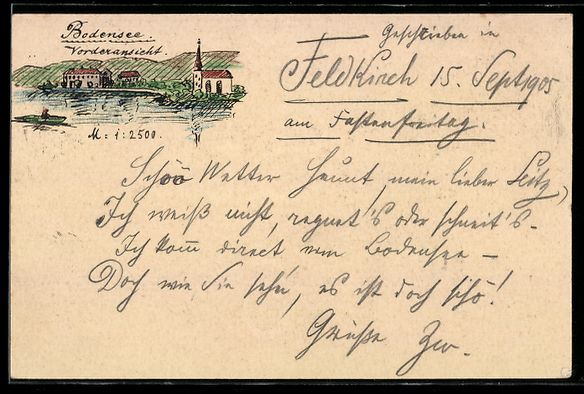 Bodensee.
Vorderansicht.
M: 1:2500.
Geschrieben in
Feldkirch 15. Sept 1905
am Fastenfreitag.
Schöö Wetter heunt, mein lieber
Ich weiß nicht, regnet's oder schneit's -
Ich komm direct vom Bodensee -
Doch wie Sie seh'n, es ist doch schö!
Grüße